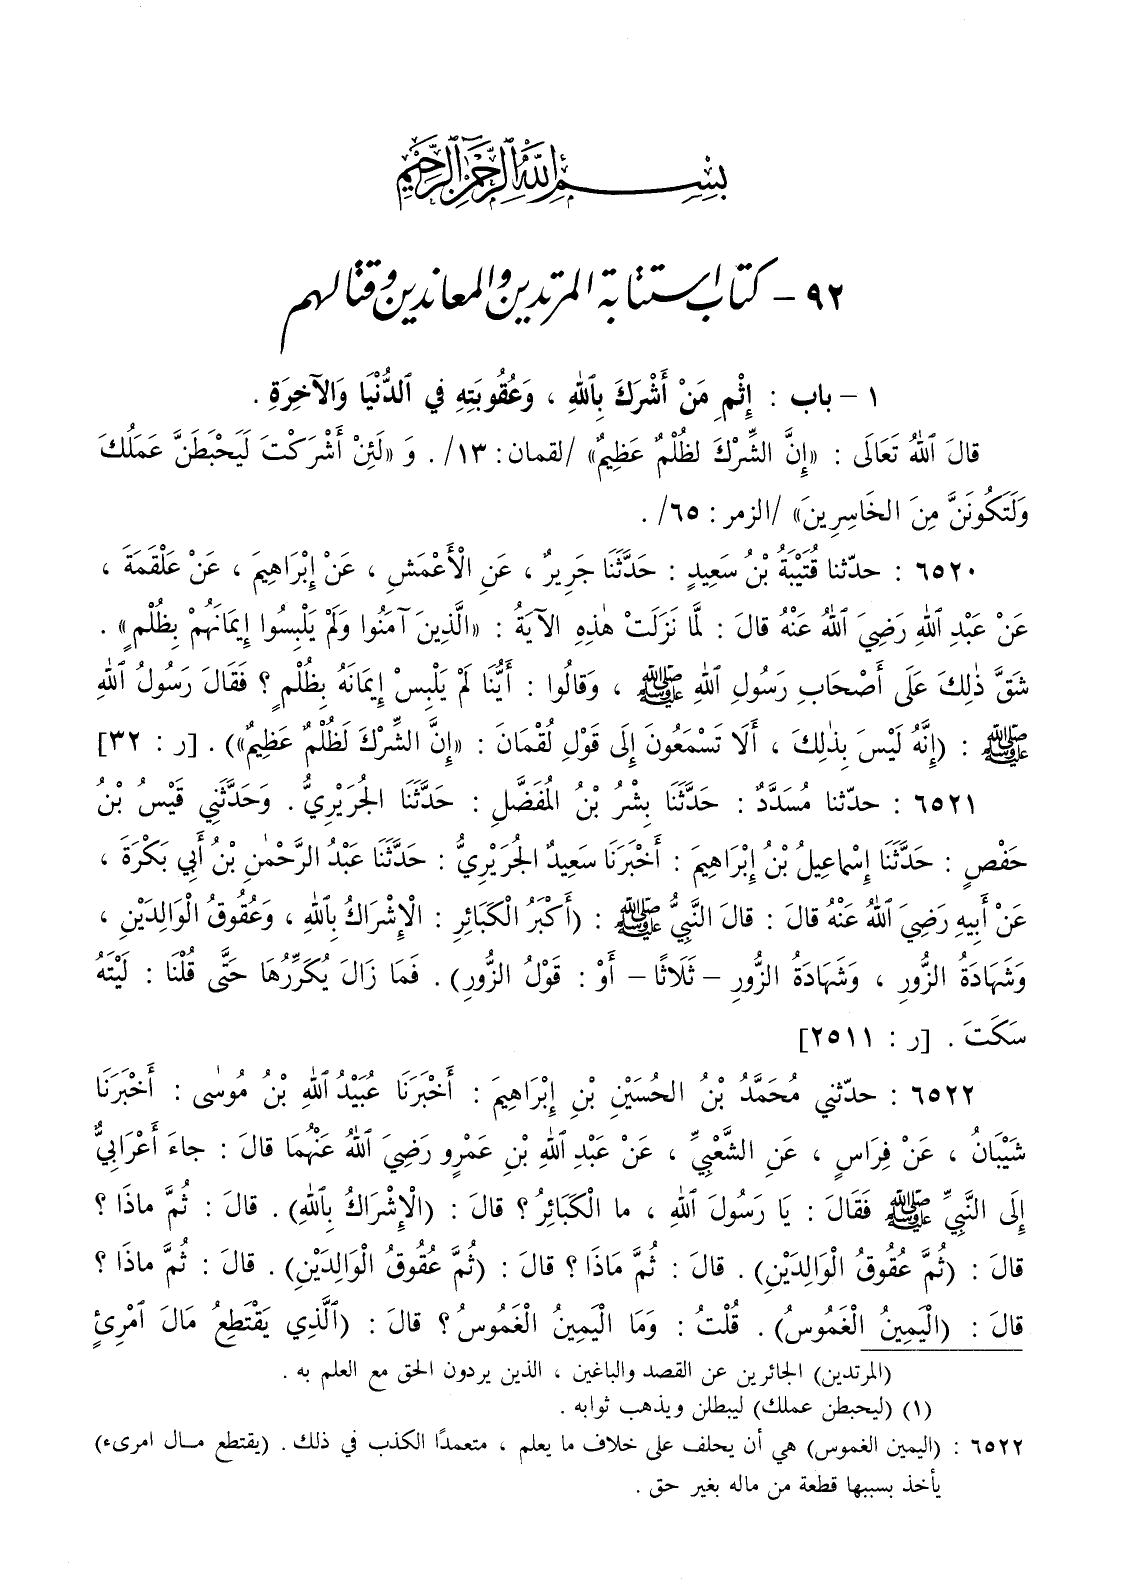 بِسْمِ ٱللّٰهِ ٱلرَّحْمٰنِ ٱلرَّحِيمِ
٩٢ - كتاب استتابة المرتدين والمعاندين وقتالهم
١ - باب : إِثْمِ مَنْ أَشْرَكَ بِٱللهِ ، وَعُقُوبَتِهِ فِي ٱلدُّنْيَا وَالآخِرَةِ .
قالَ ٱللهُ تَعَالَى : «إِنَّ الشِّرْكَ لَظُلْمٌ عَظِيمٌ» /لقمان: ١٣/ . وَ «لَئِنْ أَشْرَكْتَ لَيَحْبَطَنَّ عَمَلُكَ
وَلَتَكُونَنَّ مِنَ الخَاسِرِينَ» /الزمر : ٦٥/ .
٦٥٢٠ : حدّثنا قُتَيْبَةُ بْنُ سَعِيدٍ : حَدَّثَنَا جَرِيرٌ ، عَنِ الْأَعْمَشِ ، عَنْ إِبْرَاهِيمَ ، عَنْ عَلْقَمَةَ ،
عَنْ عَبْدِ ٱللهِ رَضِيَ ٱللهُ عَنْهُ قالَ : لَمَّا نَزَلَتْ هٰذِهِ الآيَةُ : «الَّذِينَ آمَنُوا وَلَمْ يَلْبِسُوا إِيمَانَهُمْ بِظُلْمٍ» .
شَقَّ ذٰلِكَ عَلَى أَصْحَابِ رَسُولِ ٱللهِ ﷺ ، وَقالُوا : أَيُّنَا لَمْ يَلْبِسْ إِيمَانَهُ بِظُلْمٍ ؟ فَقَالَ رَسُولُ ٱللهِ
ﷺ : (إِنَّهُ لَيْسَ بِذٰلِكَ ، أَلَا تَسْمَعُونَ إِلَى قَوْلِ لُقْمَانَ : «إِنَّ الشِّرْكَ لَظُلْمٌ عَظِيمٌ») . [ر : ٣٢]
٦٥٢١ : حدّثنا مُسَدَّدٌ : حَدَّثَنَا بِشْرُ بْنُ المُفَضَّلِ : حَدَّثَنَا الجُرَيْرِيُّ . وَحَدَّثَنِي قَيْسُ بْنُ
حَفْصٍ : حَدَّثَنَا إِسْماعِيلُ بْنُ إِبْرَاهِيمَ : أَخْبَرَنَا سَعِيدٌ الجُرَيْرِيُّ : حَدَّثَنَا عَبْدُ الرَّحْمٰنِ بْنُ أَبِي بَكْرَةَ ،
عَنْ أَبِيهِ رَضِيَ ٱللهُ عَنْهُ قالَ : قالَ النَّبِيُّ ﷺ : (أَكْبَرُ الْكَبَائِرِ : الْإِشْرَاكُ بِٱللهِ ، وَعُقُوقُ الْوَالِدَيْنِ ،
وَشَهَادَةُ الزُّورِ ، وَشَهَادَةُ الزُّورِ - ثَلَاثًا - أَوْ : قَوْلُ الزُّورِ) . فَمَا زَالَ يُكَرِّرُهَا حَتَّى قُلْنَا : لَيْتَهُ
سَكَتَ . [ر : ٢٥١١]
٦٥٢٢ : حدّثني مُحَمَّدُ بْنُ الحُسَيْنِ بْنِ إِبْرَاهِيمَ : أَخْبَرَنَا عُبَيْدُ ٱللهِ بْنُ مُوسٰى : أَخْبَرَنَا
شَيْبَانُ ، عَنْ فِرَاسٍ ، عَنِ الشَّعْبِيِّ ، عَنْ عَبْدِ ٱللهِ بْنِ عَمْرٍو رَضِيَ ٱللهُ عَنْهُمَا قالَ : جاءَ أَعْرَابِيٌّ
إِلَى النَّبِيِّ ﷺ فَقَالَ : يَا رَسُولَ ٱللهِ ، ما الْكَبَائِرُ ؟ قالَ : (الْإِشْرَاكُ بِٱللهِ) . قالَ : ثُمَّ ماذَا ؟
قالَ : (ثُمَّ عُقُوقُ الْوَالِدَيْنِ) . قالَ : ثُمَّ مَاذَا ؟ قالَ : (ثُمَّ عُقُوقُ الْوَالِدَيْنِ) . قالَ : ثُمَّ ماذَا ؟
قالَ : (الْيَمِينُ الْغَمُوسُ) . قُلْتُ : وَمَا الْيَمِينُ الْغَمُوسُ ؟ قالَ : (ٱلَّذِي يَقْتَطِعُ مَالَ ٱمْرِئٍ
(المرتدين) الجائرين عن القصد والباغين ، الذين يردون الحق مع العلم به .
(١) (ليحبطن عملك) ليبطلن ويذهب ثوابه .
٦٥٢٢ : (اليمين الغموس) هي أن يحلف على خلاف ما يعلم ، متعمدًا الكذب في ذلك . (يقتطع مال امرىء)
يأخذ بسببها قطعة من ماله بغير حق .